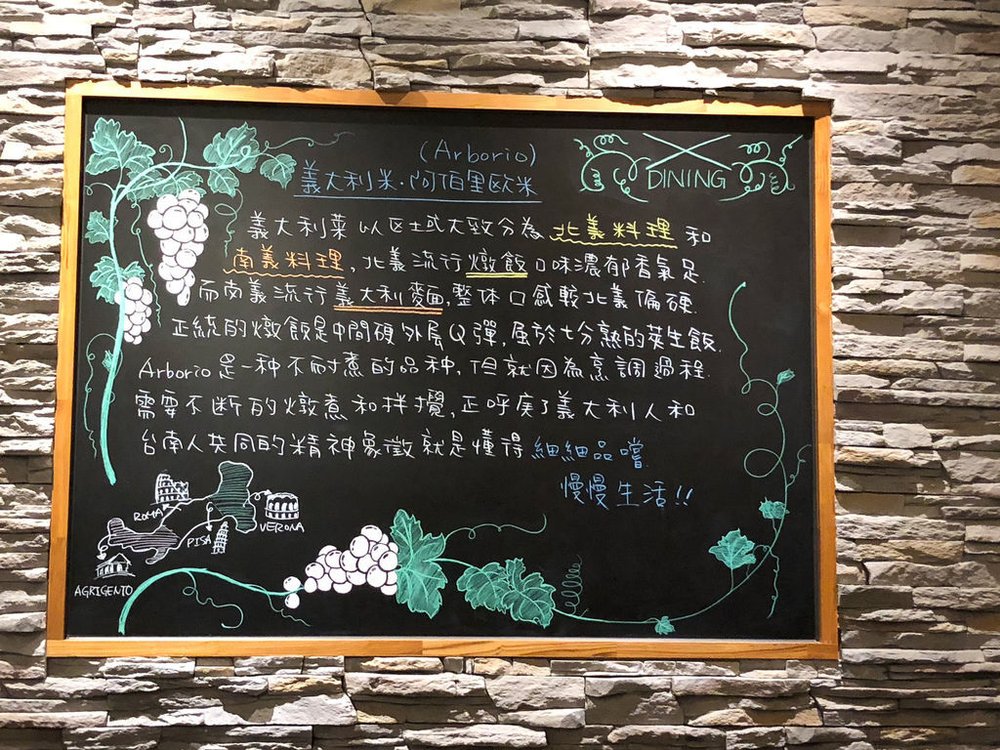 (Arborio)
義大利米·阿佰里欧米
DINING
義大利菜以区域大致分為北義料理和
南義料理,北義流行燉飯口味濃郁香氣足.
而南義流行義大利麵,整体口感較北義偏硬.
正統的燉飯是中間硬外层Q彈,屬於七分熟的夾生飯.
Arborio是一种不耐煮的品种,但就因為烹調過程.
需要不断的燉煮和拌攪,正呼应了義大利人和
台南人共同的精神象徵就是懂得細細品嚐.
慢慢生活!!
ROMA
VERONA
PISA
AGRIGENTO